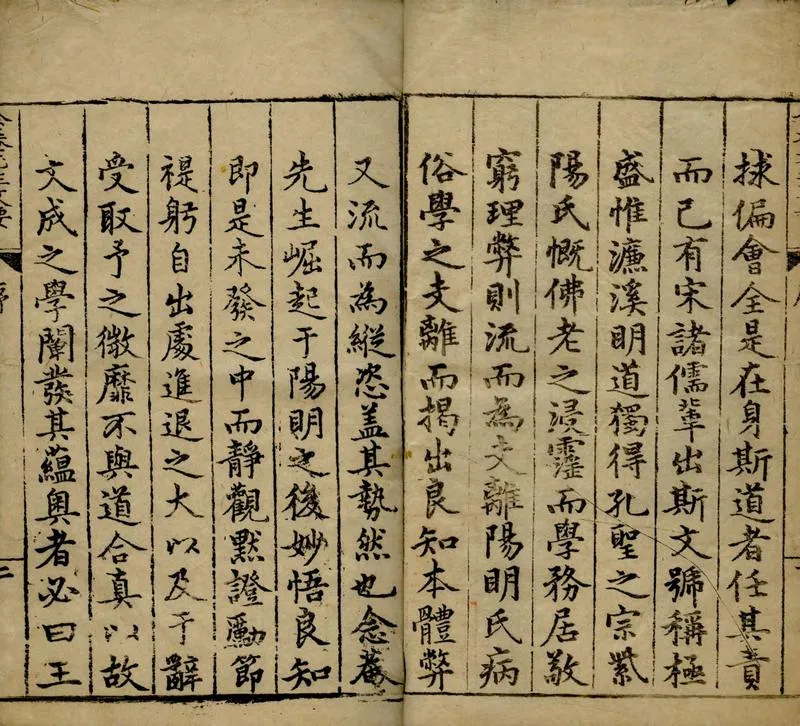 捄偏會全是在身斯道者任其責
而已有宋諸儒輩出斯文號稱極
盛惟濂溪明道獨得孔聖之宗紫
陽氏慨佛老之浸靈而學務居敬
窮理弊則流而為支離陽明氏病
俗學之支離而揭出良知本體弊
又流而為縱恣盖其勢然也念菴
先生崛起于陽明之後妙悟良知
即是未發之中而靜觀默證勵節
禔躬自出處進退之大以及于辭
受取予之微靡不與道合真以故
文成之學闡發其蘊奧者必曰王
序
二